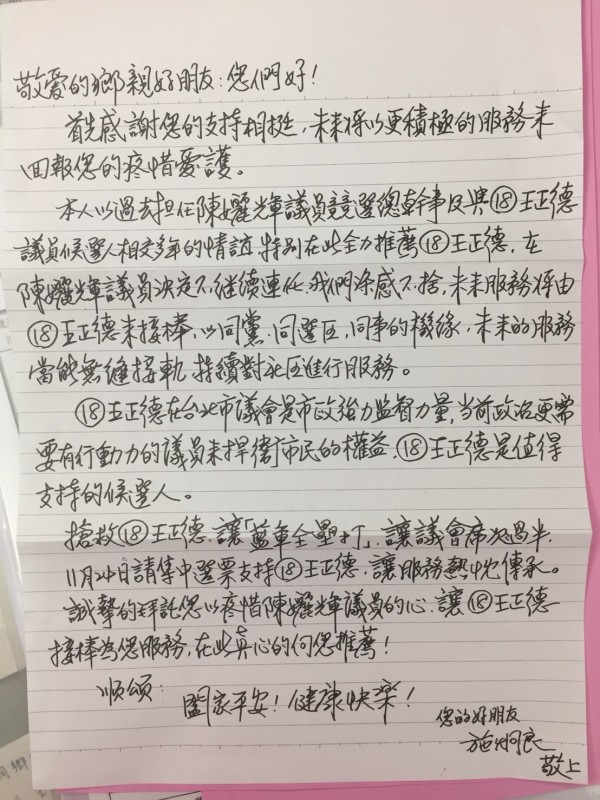 敬愛的鄉親好朋友:您們好!
首先感謝您的支持相挺,未來將以更積極的服務來
回報您的疼惜愛護。
本人以過去担任陳孋輝議員競選總幹事及與⑱王正德
議員候選人相交多年的情誼,特別在此全力推薦⑱王正德,在
陳孋輝議員決定不繼續連任,我們深感不捨,未來服務將由
⑱王正德來接棒,以同黨、同選區、同事的機緣,未來的服務
當能無縫接軌,持續對社區進行服務。
⑱王正德在台北市議會是市政強力監督力量,當前政治更需
要有行動力的議員來捍衛市民的權益,⑱王正德是值得
支持的候選人。
搶救⑱王正德,讓「藍軍全壘打」,讓議會席次過半,
11月24日請集中選票支持⑱王正德,讓服務熱忱傳承。
誠摯的拜託您以疼惜陳孋輝議員的心,讓⑱王正德
接棒為您服務,在此真心的向您推薦!
順頌:
闔家平安!健康快樂!
您的好朋友
施炳良
敬上